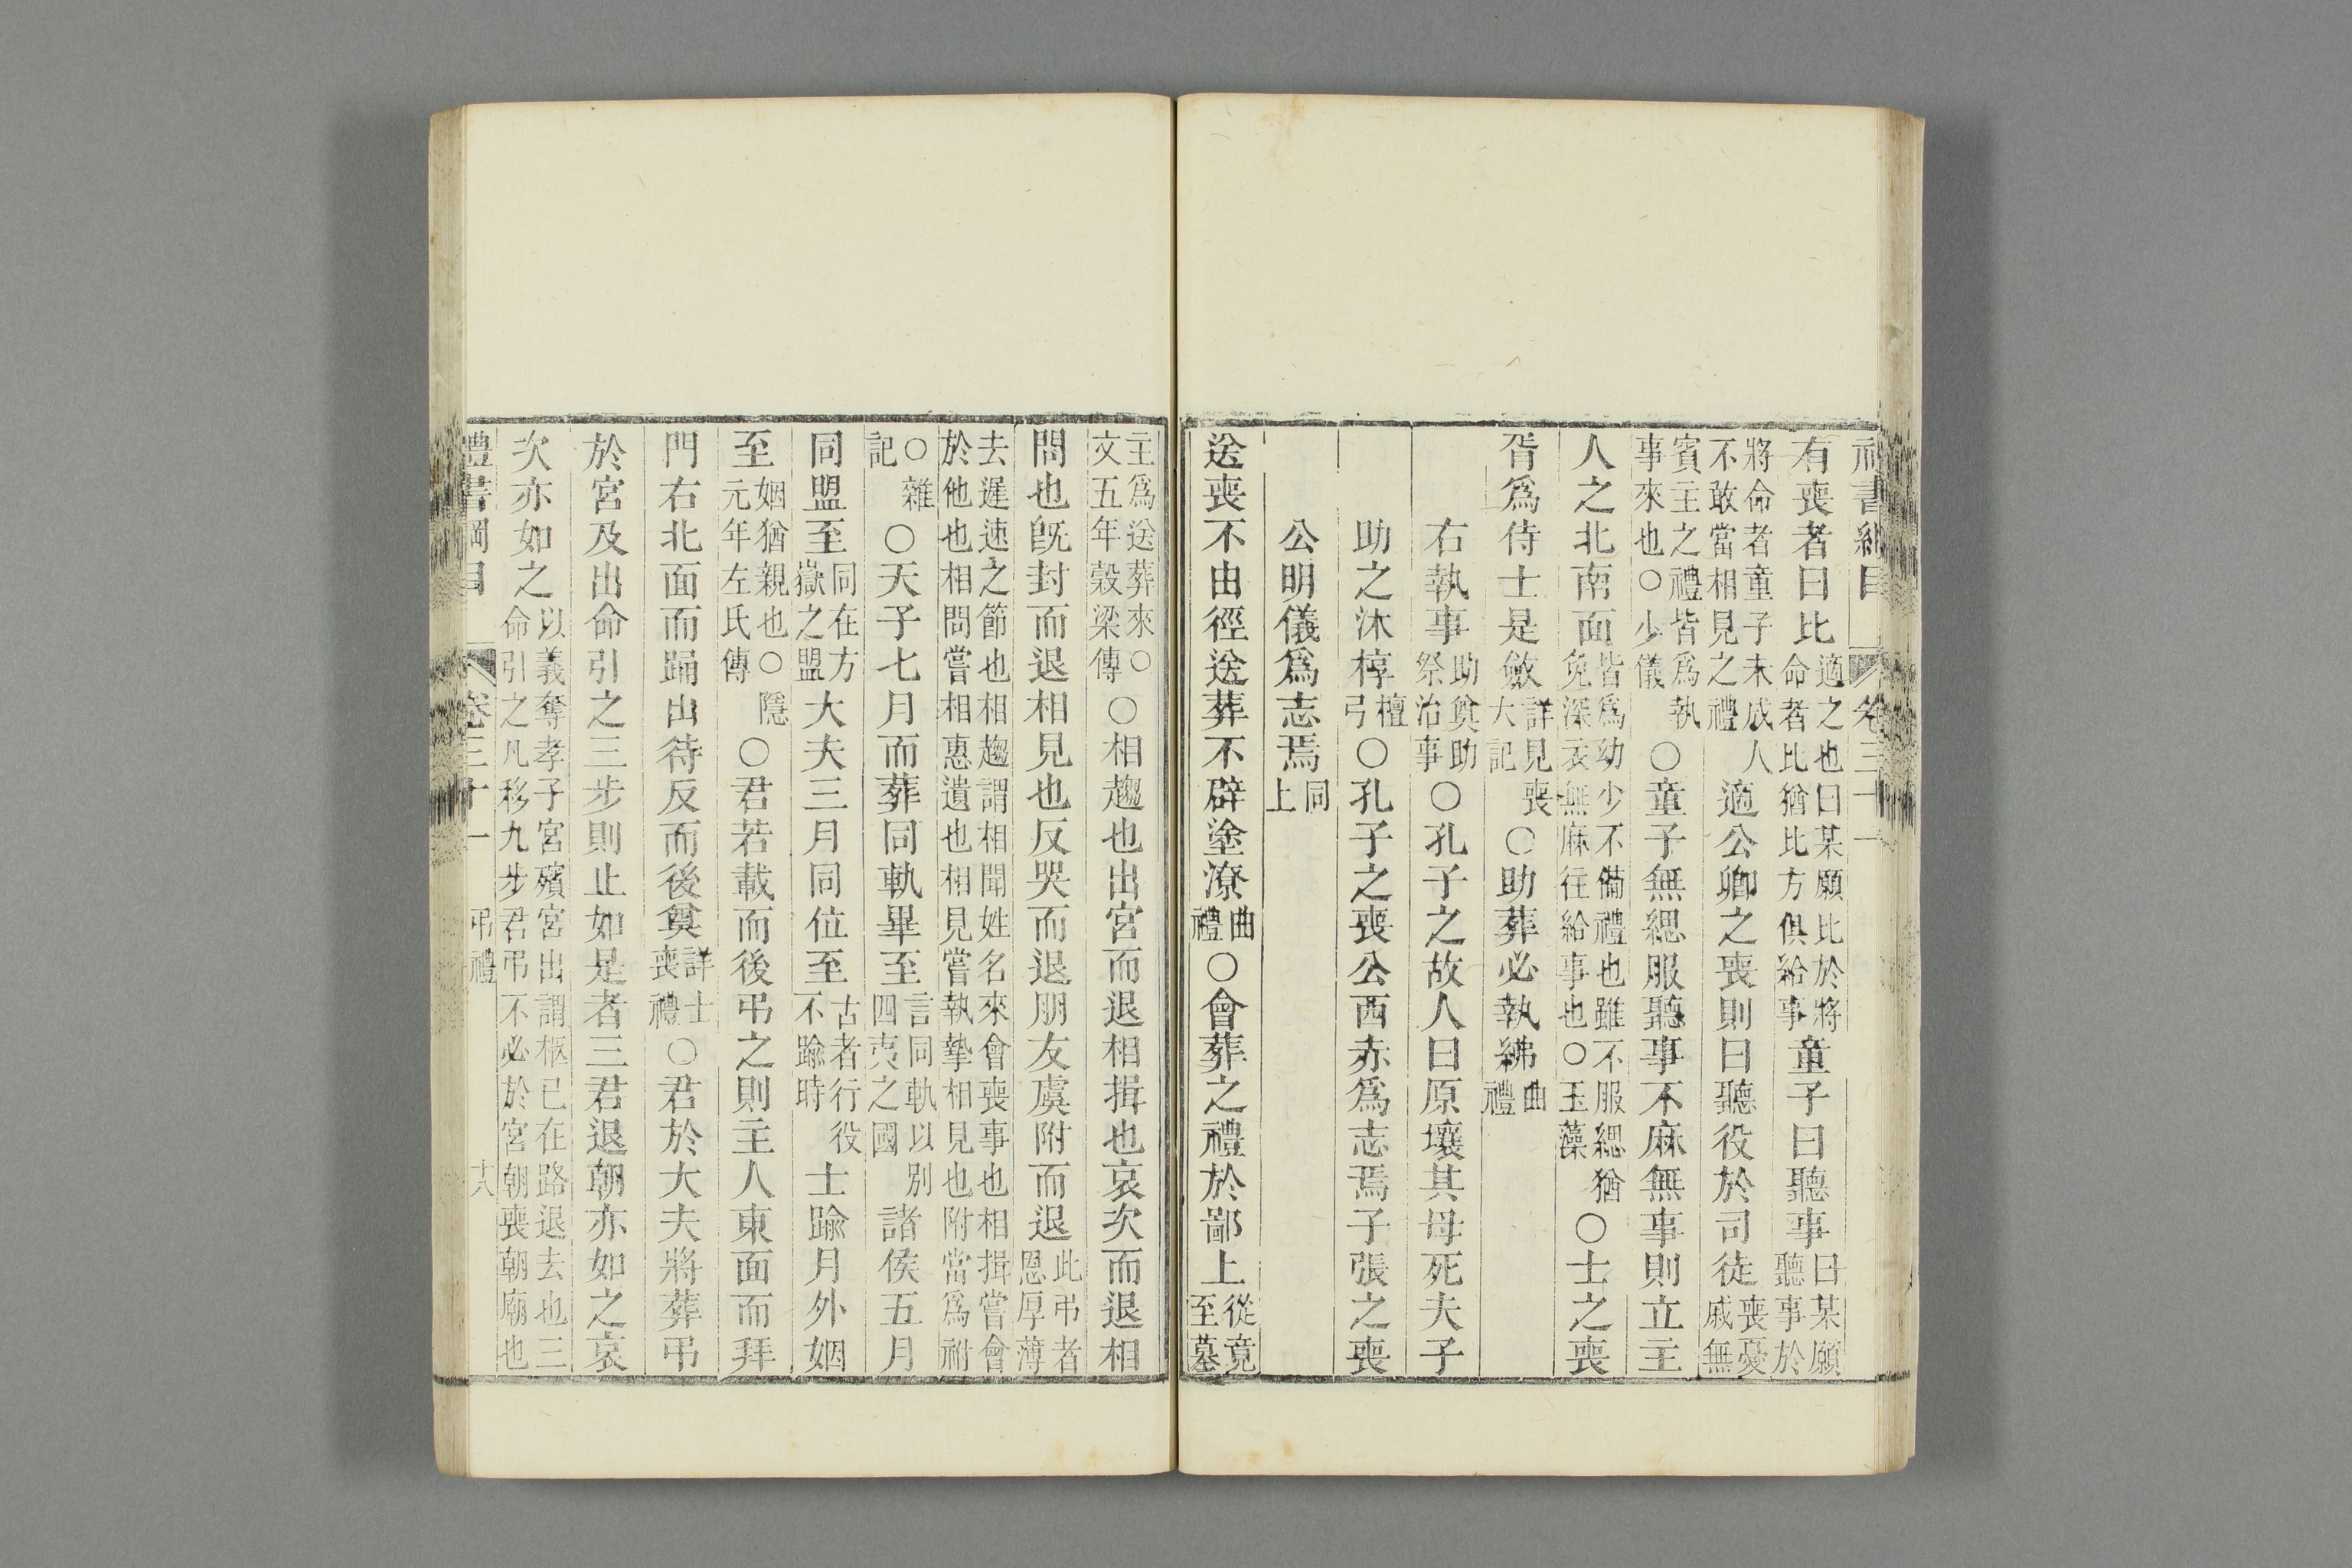 有喪者曰比適之也曰某願比於將命者比猶比方俱給事童子曰聽事曰某願聽事於
將命者童子未成人不敢當相見之禮適公卿之喪則曰聽役於司徒喪憂戚無
賓主之禮皆爲執事來也○少儀○童子無緦服聽事不麻無事則立主
人之北南面皆爲幼少不備禮也雖不服緦猶免深衣無麻往給事也○玉藻○士之喪
胥爲侍士是斂詳見喪大記○助葬必執紼曲禮
右執事助奠助祭治事○孔子之故人曰原壤其母死夫子
助之沐椁檀弓○孔子之喪公西赤爲志焉子張之喪
公明儀爲志焉同上
送喪不由徑送葬不辟塗潦曲禮○會葬之禮於鄙上從竟至墓
主爲送葬來○文五年穀梁傳○相趨也出宮而退相揖也哀次而退相
問也旣封而退相見也反哭而退朋友虞附而退此弔者恩厚薄
去遲速之節也相趨謂相聞姓名來會喪事也相揖嘗會於他也相問嘗相惠遺也相見嘗執摯相見也附當爲祔
○雜記○天子七月而葬同軌畢至言同軌以別四夷之國諸侯五月
同盟至同在方嶽之盟大夫三月同位至古者行役不踰時士踰月外姻
至姻猶親也○隱元年左氏傳○君若載而後弔之則主人東面而拜
門右北面而踊出待反而後奠詳士喪禮○君於大夫將葬弔
於宮及出命引之三步則止如是者三君退朝亦如之哀
次亦如之以義奪孝子宮殯宮出謂柩已在路退去也三命引之凡移九步君弔不必於宮朝喪朝廟也
禮書綱目 卷三十一 弔禮 十八